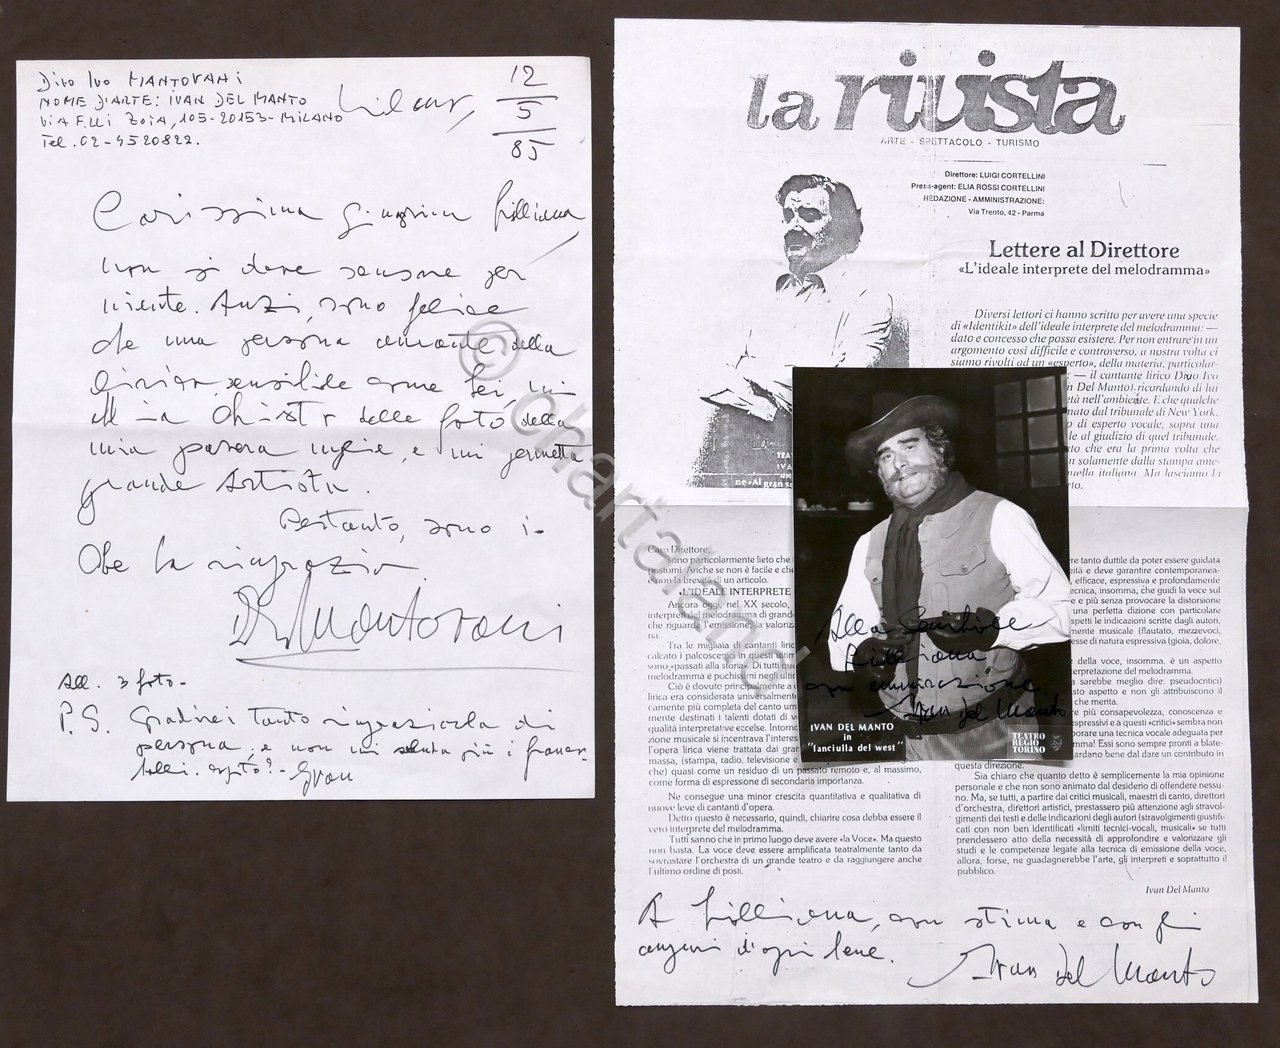 Divo Ivo MANTOVANI
NOME D'ARTE: IVAN DEL MANTO
VIA F.LLI ZOIA, 105-20153-MILANO
TEL. 02-4520822.
12
5
85
Carissima Lilliana,
non si deve scusare per
niente. Anzi, sono felice
che una persona amante della
lirica, sensibile come Lei, mi
delle foto della
mia e mi permetta
grande Artista.
Pertanto, sono io
che la ringrazio.
Mantovani
All. 3 foto-
P.S. Gradirei tanto ringraziarla di
persona, e non mi più i franco-
bolli. capito?- Ivan
la rivista
ARTE - SPETTACOLO - TURISMO
Direttore: LUIGI CORTELLINI
Press-agent: ELIA ROSSI CORTELLINI
REDAZIONE - AMMINISTRAZIONE:
Via Trento, 42 - Parma
Lettere al Direttore
«L'ideale interprete del melodramma»
Diversi lettori ci hanno scritto per avere una specie
di «Identikit» dell'ideale interprete del melodramma: —
dato e concesso che possa esistere. Per non entrare in un
argomento così difficile e controverso, a nostra volta ci
siamo rivolti ad un «esperto», della materia, particolar-
— il cantante lirico Divo Ivo
Del Manto) ricordando di lui
età nell'ambiente. E che qualche
nato dal tribunale di New York.
o di esperto vocale, sopra una
le al giudizio di quel tribunale.
to che era la prima volta che
n solamente dalla stampa ame-
quella italiana. Ma lasciamo la
rto.
TEA
IVA
ne «Al gran s
Caro Direttore,
sono particolarmente lieto che
postomi. Anche se non è facile e ch
e non è breve, di un articolo.
«L'IDEALE INTERPRETE
Ancora oggi, nel XX secolo,
interpreti del melodramma di grande
che riguarda l'emissione, la valoriz
na.
Tra le migliaia di cantanti liri
calcato i palcoscenici in questi ultim
sono «passati alla storia». Di tutti qu
melodramma e pochissimi negli ultim
Ciò è dovuto principalmente a
lirica era considerata universalmente
camente più completa del canto uman
mente destinati i talenti dotati di vo
qualità interpretative eccelse. Intorno
zione musicale si incentrava l'interes
l'opera lirica viene trattata dai gran
massa, (stampa, radio, televisione e
che) quasi come un residuo di un passato remoto e, al massimo,
come forma di espressione di secondaria importanza.
Ne consegue una minor crescita quantitativa e qualitativa di
nuove leve di cantanti d'opera.
Detto questo è necessario, quindi, chiarire cosa debba essere il
vero interprete del melodramma.
Tutti sanno che in primo luogo deve avere «la Voce». Ma questo
non basta. La voce deve essere amplificata teatralmente tanto da
sovrastare l'orchestra di un grande teatro e da raggiungere anche
l'ultimo ordine di posti.
ere tanto duttile da poter essere guidata
cità e deve garantire contemporanea-
efficace, espressiva e profondamente
tecnica, insomma, che guidi la voce sul
e più senza provocare la distorsione
una perfetta dizione con particolare
spetti le indicazioni scritte dagli autori,
mente musicale (flautato, mezzevoci,
esse di natura espressiva (gioia, dolore,
della voce, insomma, è un aspetto
terpretazione del melodramma.
sarebbe meglio dire: pseudocritici)
sto aspetto e non gli attribuiscono il
che merita.
e più consapevolezza, conoscenza e
espressivi e a questi «critici» sembra non
orare una tecnica vocale adeguata per
mma! Essi sono sempre pronti a blate-
ardano bene dal dare un contributo in
questa direzione.
Sia chiaro che quanto detto è semplicemente la mia opinione
personale e che non sono animato dal desiderio di offendere nessu-
no. Ma, se tutti, a partire dai critici musicali, maestri di canto, direttori
d'orchestra, direttori artistici, prestassero più attenzione agli stravol-
gimenti dei testi e delle indicazioni degli autori (stravolgimenti giustifi-
cati con non ben identificati «limiti tecnici-vocali, musicali» se tutti
prendessero atto della necessità di approfondire e valorizzare gli
studi e le competenze legate alla tecnica di emissione della voce,
allora, forse, ne guadagnerebbe l'arte, gli interpreti e soprattutto il
pubblico.
Ivan Del Manto
Alla Gentile
Lilliana,
con ammirazione
Ivan Del Manto
IVAN DEL MANTO
in
"fanciulla del west"
TEATRO
REGIO
TORINO
A Lilliana, con stima e con gli
auguri d'ogni bene.
Ivan Del Manto
© chartaland